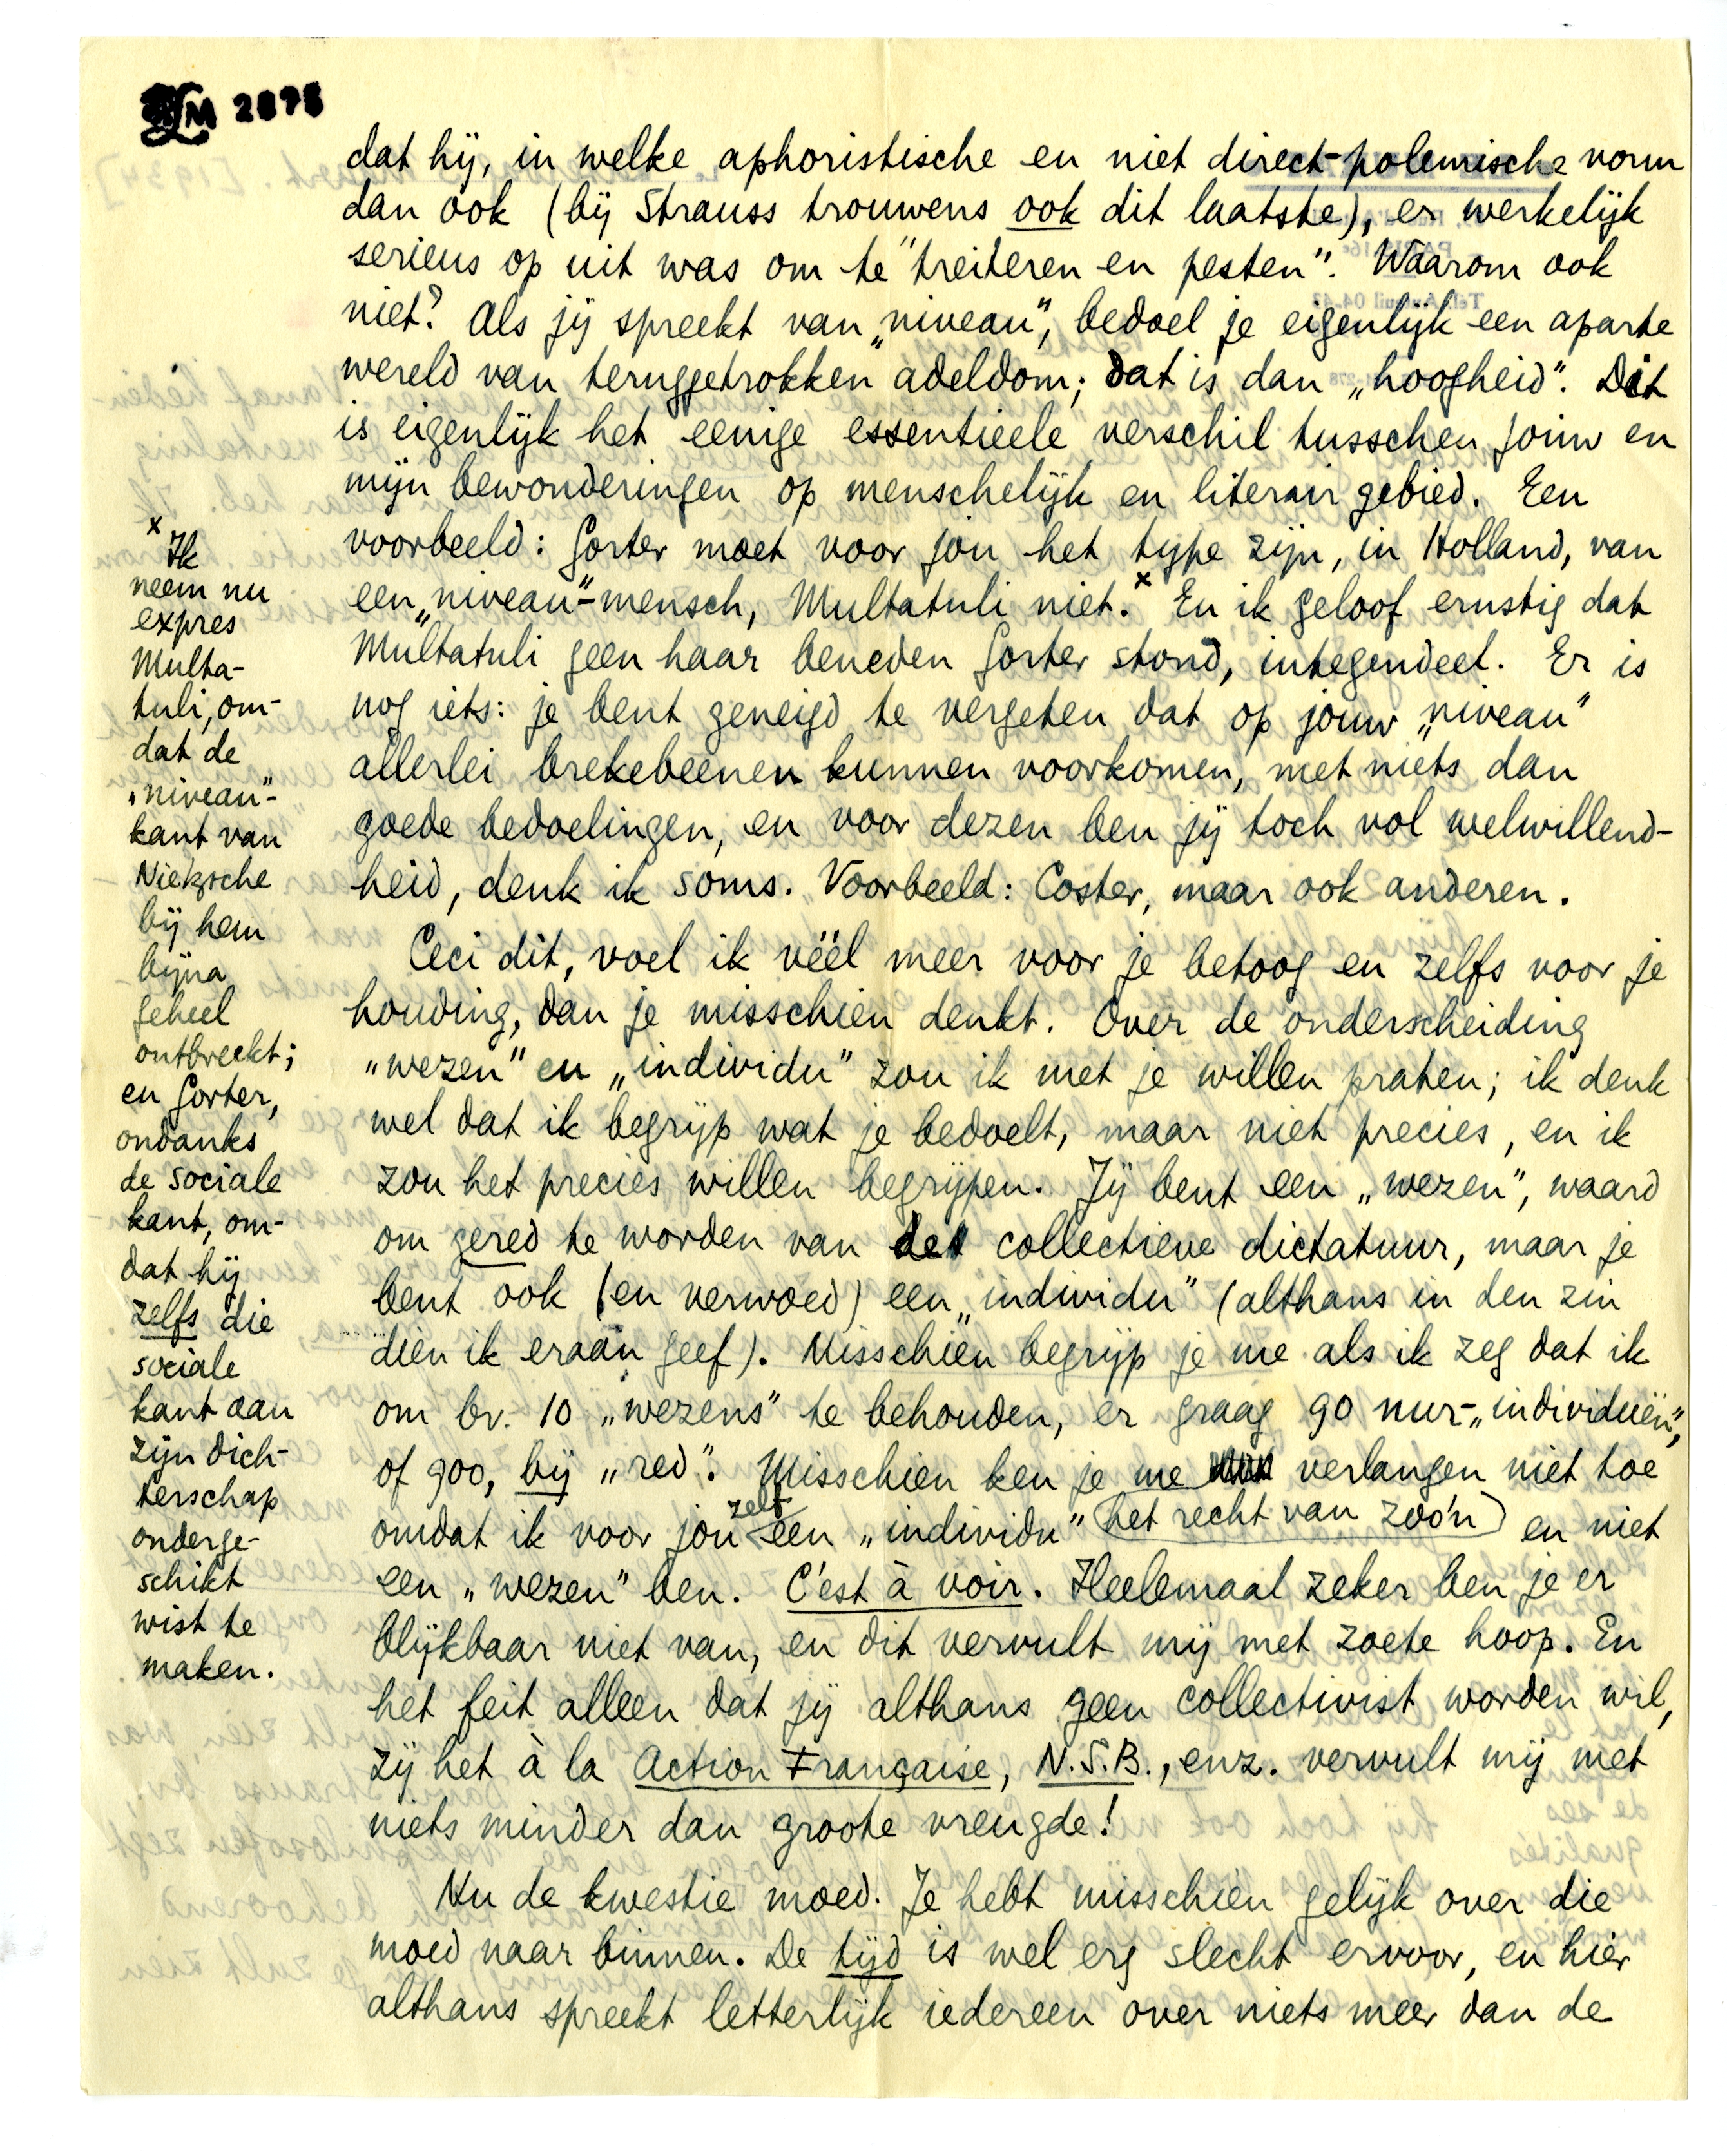 LM 2878
dat hij, in welke aphoristische en niet direct-polemische vorm
dan ook (bij Strauss trouwens ook dit laatste), er werkelijk
serieus op uit was om te "treiteren en pesten". Waarom ook
niet? Als jij spreekt van „niveau", bedoel je eigenlijk een aparte
wereld van teruggetrokken adeldom; dat is dan „hoogheid". Dit
is eigenlijk het eenige essentieele verschil tusschen jouw en
mijn bewonderingen op menschelijk en literair gebied. Een
voorbeeld: Gorter moet voor jou het type zijn, in Holland, van
een „niveau"-mensch, Multatuli niet.x En ik geloof ernstig dat
Multatuli geen haar beneden Gorter stond, integendeel. Er is
nog iets: je bent geneigd te vergeten dat op jouw „niveau"
allerlei brekebeenen kunnen voorkomen, met niets dan
goede bedoelingen, en voor dezen ben jij toch vol welwillend-
heid, denk ik soms. Voorbeeld: Coster, maar ook anderen.
Ceci dit, voel ik véél meer voor je betoog en zelfs voor je
houding, dan je misschien denkt. Over de onderscheiding
„wezen" en „individu" zou ik met je willen praten; ik denk
wel dat ik begrijp wat je bedoelt, maar niet precies, en ik
zou het precies willen begrijpen. Jij bent een „wezen", waard
om gered te worden van de collectieve dictatuur, maar je
bent ook (en verwoed) een „individu" (althans in den zin
dien ik eraan geef). Misschien begrijp je me als ik zeg dat ik
om bv. 10 „wezens" te behouden, er graag 90 nur-„individuën",
of 900, bij „red". Misschien ken je me verlangen niet toe
omdat ik voor jou zelf een „individu" (het recht van zoo'n) en niet
een „wezen" ben. C'est à voir. Heelemaal zeker ben je er
blijkbaar niet van, en dit vervult mij met zoete hoop. En
het feit alleen dat jij althans geen collectivist worden wil,
zij het à la Action Française, N.S.B., enz. vervult mij met
niets minder dan groote vreugde!
Nu de kwestie moed. Je hebt misschien gelijk over die
moed naar binnen. De tijd is wel erg slecht ervoor, en hier
althans spreekt letterlijk iedereen over niets meer dan de
x Ik
neem nu
expres
Multa-
tuli, om-
dat de
„niveau"-
kant van
Nietzsche
bij hem
bijna
geheel
ontbreekt;
en Gorter,
ondanks
de sociale
kant, om-
dat hij
zelfs die
sociale
kant aan
zijn dich-
terschap
onderge-
schikt
wist te
maken.